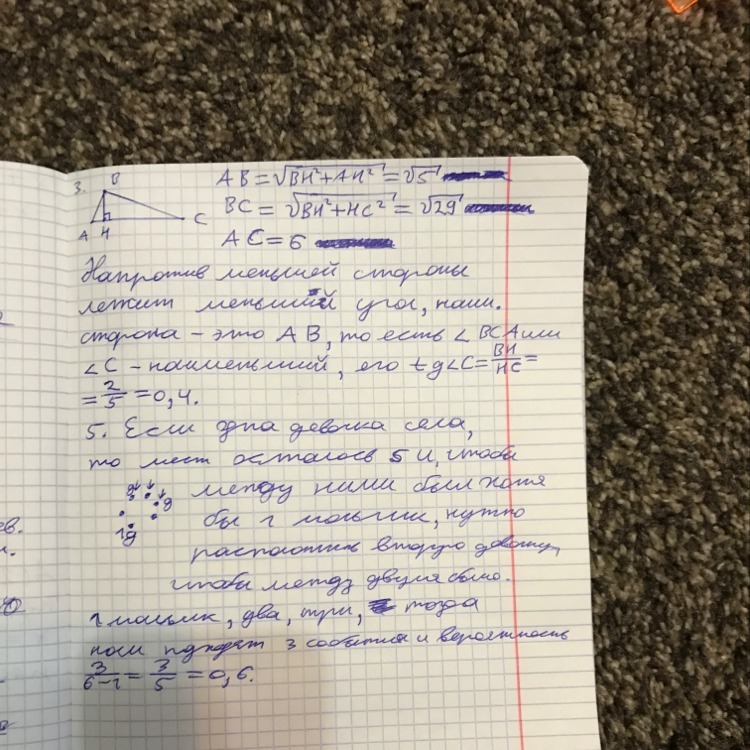 3.
B
A H
C
AB = √BH²+AH² = √5
BC = √BH²+HC² = √29
AC = 6
Напротив меньшей стороны
лежит меньший угол, наим.
сторона - это AB, то есть ∠BCA или
∠C - наименьший, его tg∠C = BH/HC =
= 2/5 = 0,4.
5. Если одна девочка села,
то мест осталось 5 и, чтобы
между ними был хотя
бы 1 мальчик, нужно
вторую девочку,
чтобы между двумя было.
1 мальчик, два, три, тогда
нам подходят 3 события и вероятность
3/6-1 = 3/5 = 0,6.
1д